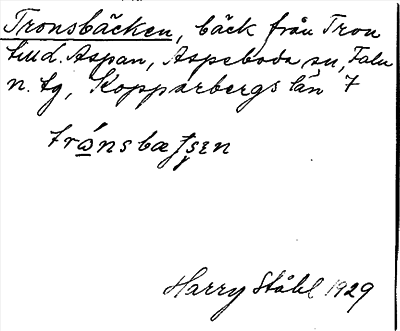 Tronsbäcken, bäck från Tron
till d. Aspan, Aspeboda sn, Falu
n. tg, Kopparbergs län 7
trånsbæʈʂɛn
Harry Ståhl 1929